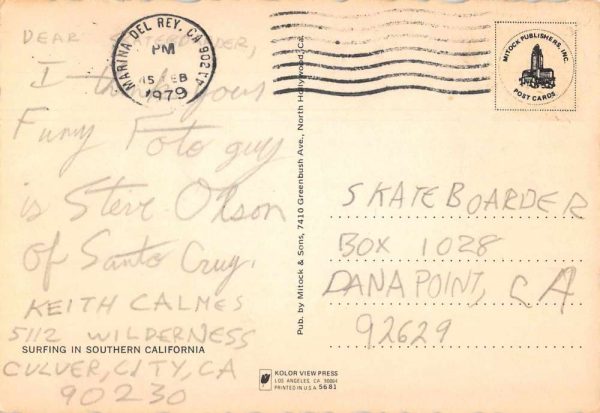 DEAR SKATEBOARDER,
I think your
Funy Foto guy
is Steve Olson
of Santa Cruz.
KEITH CALMES
5112 WILDERNESS
SURFING IN SOUTHERN CALIFORNIA
CULVER, CITY, CA
90230
MARINA DEL REY, CA 902
PM
15 FEB
1979
Pub. by Mitock & Sons, 7410 Greenbush Ave., North Hollywood, Ca.
MITOCK PUBLISHERS, INC.
POST CARDS
SKATEBOARDER
BOX 1028
DANA POINT, CA
92629
KOLOR VIEW PRESS
LOS ANGELES, CA 90064
PRINTED IN U.S.A. 5681